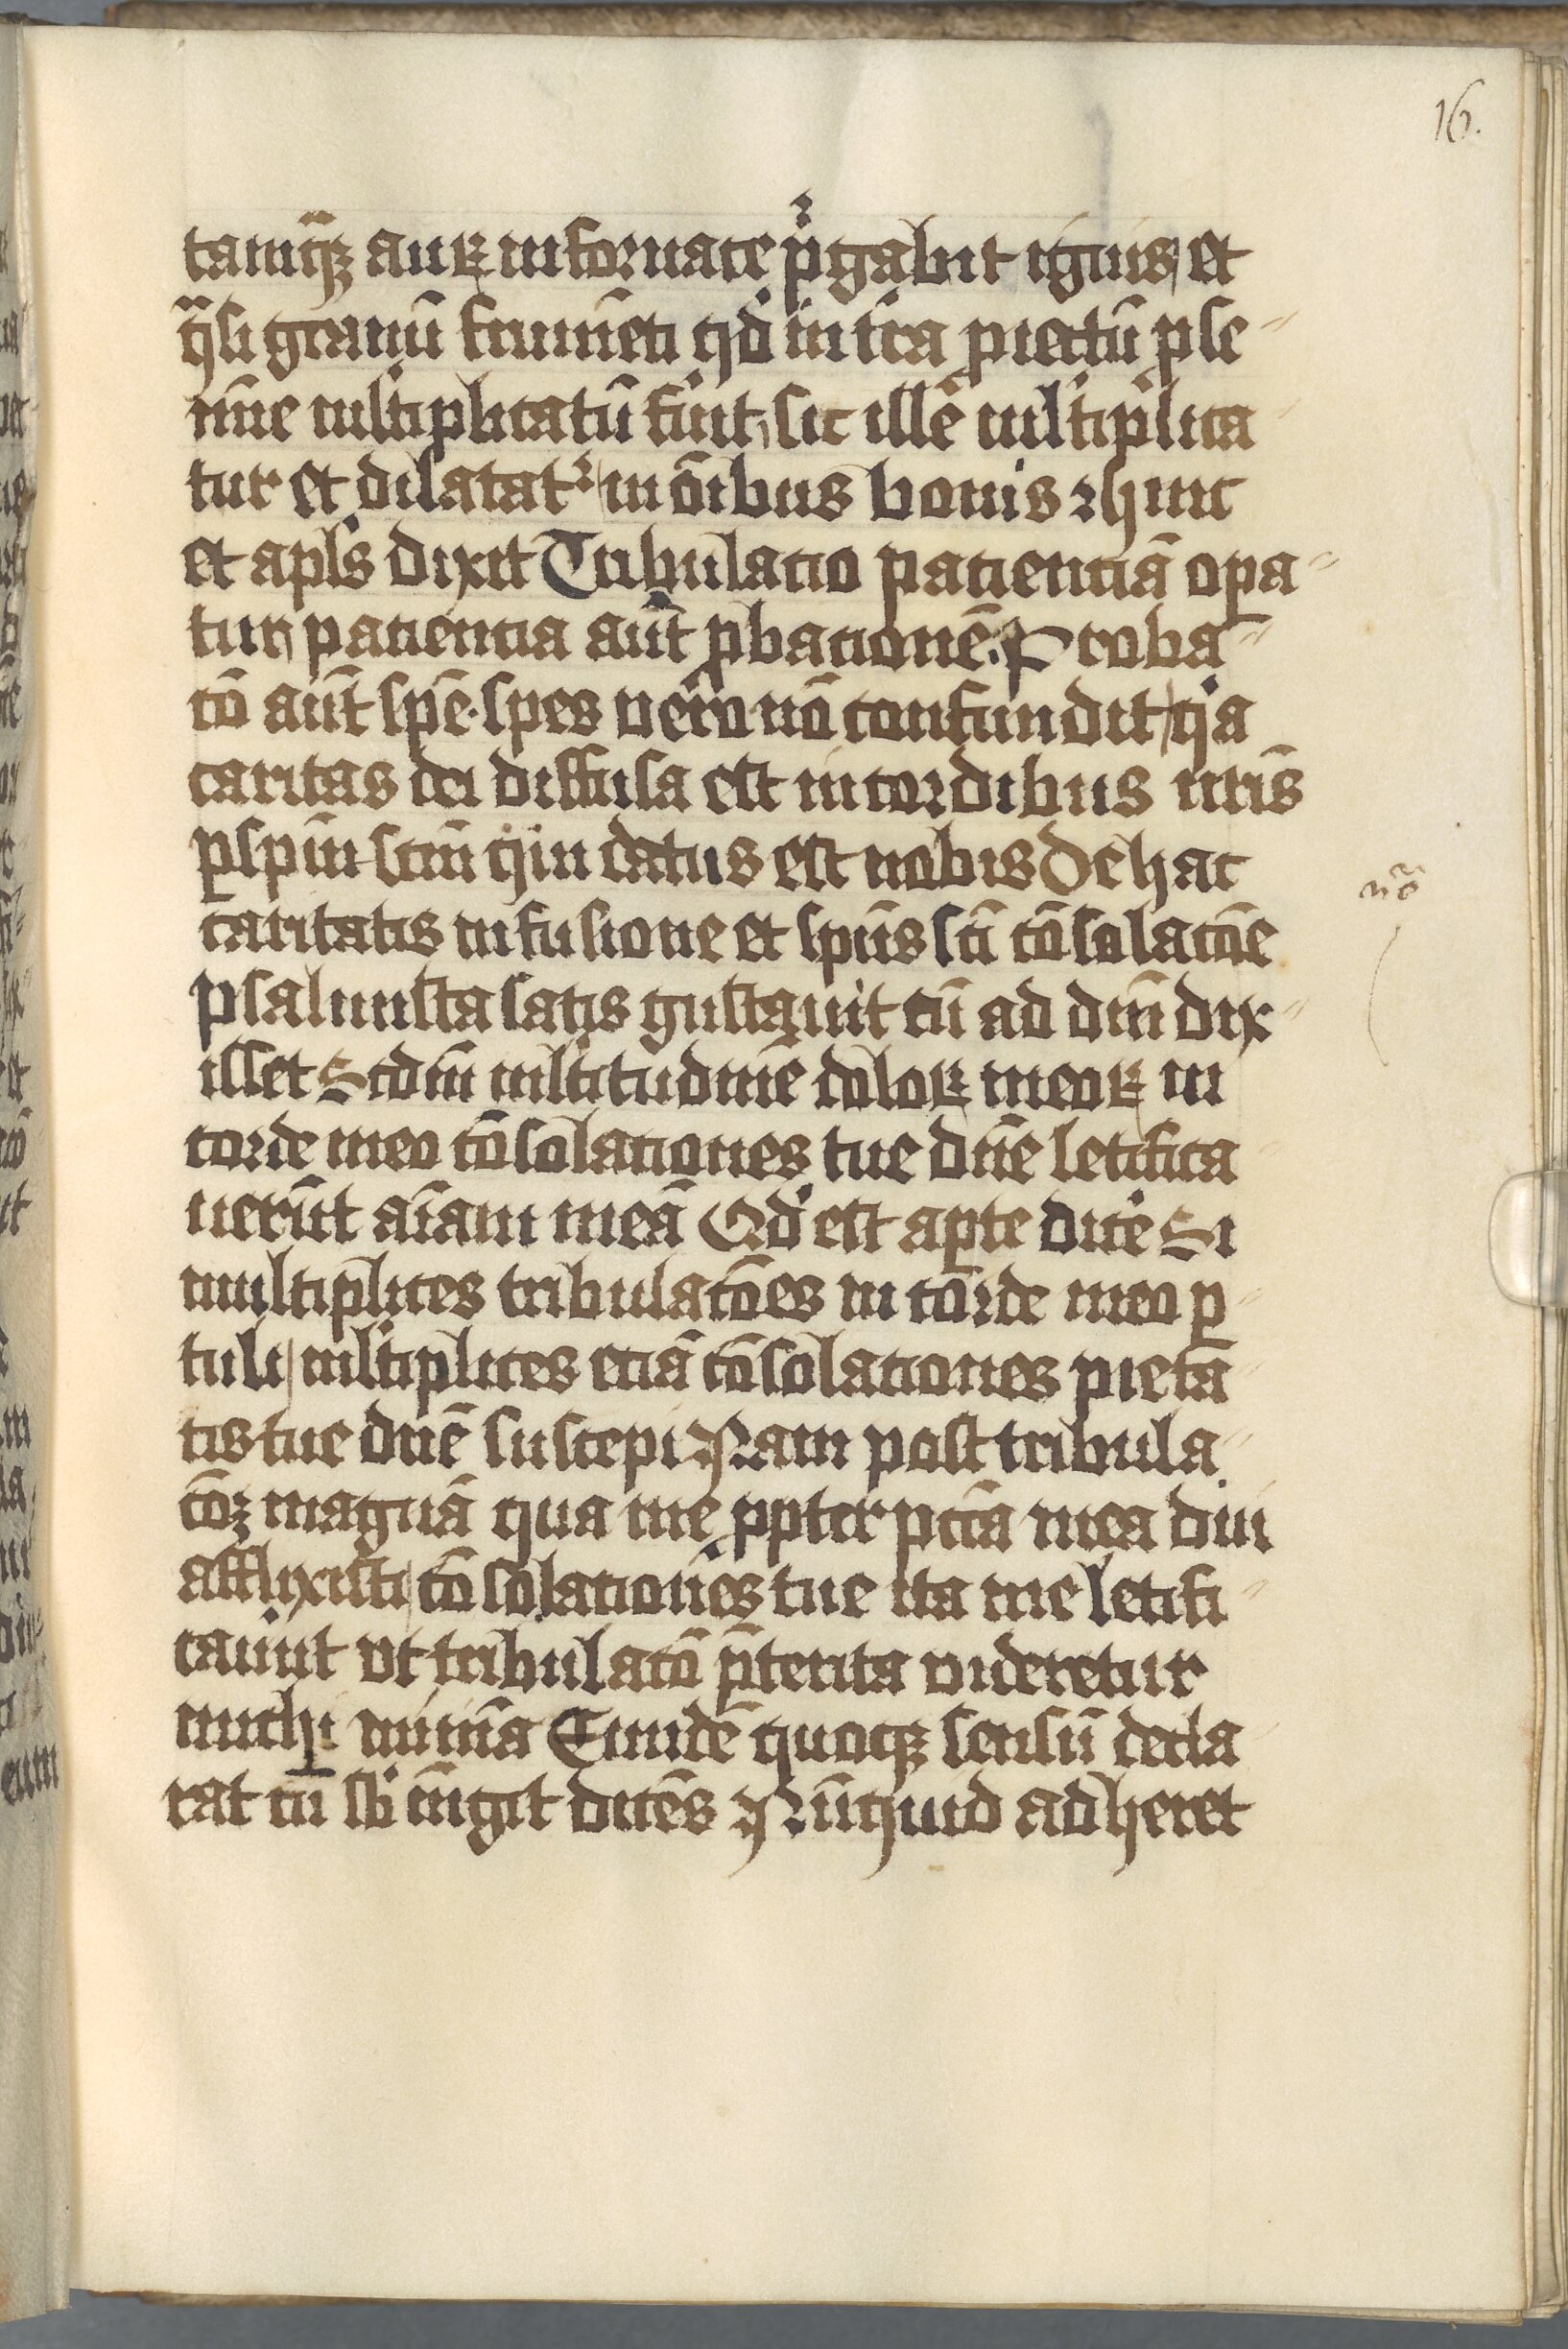 16.
tamqᷓꝫ auꝝ in fornace pᷣgabit ignis / et
qᷓsi granū frumēti qđ in tr̄a ꝓiectū ꝑse-
mīe ml̓tiplicatū fuit / sic ille ml̓tiplica
tur et dilatatᷣ / in oībus bonis ⁊ hinc
et apl̓s dixit Tribulacio patienciā oꝑa-
tur / patientia aūt ꝓbacionē. Proba-
cō aūt spē. spes uero nō confundit / qia
caritas dei diffusa est in cordibus nr̄is
ꝑ spm̄ scm̄ qui datus est nobis De hac
caritatis infusione et spūs scī cōsolacōe
psalmista satis gustauit cū ad dm̄ dix-
isset Scdm̄ ml̓titudinē doloꝝ meoꝝ in
corde meo cōsolationes tue dn̄e letifica
uerūt aīam meā Qđ est aꝑte dice Si
multiplices tribulacōes in corde meo ꝑ-
tuli / ml̓tiplices eciā cōsolationes pieta-
tis tue dn̄e suscepi Nam post tribula-
cōꝫ magnā qua me ꝓpter pctā mea diu
afflixisti / cōsolationes tue ita me letifi-
cauīt vt tribulacō p̄terita videretur
michi minīa Eiusdē quoqꝫ sensū decla
rat cū sb̓iūgit dicēs Nūquid adheret
nō